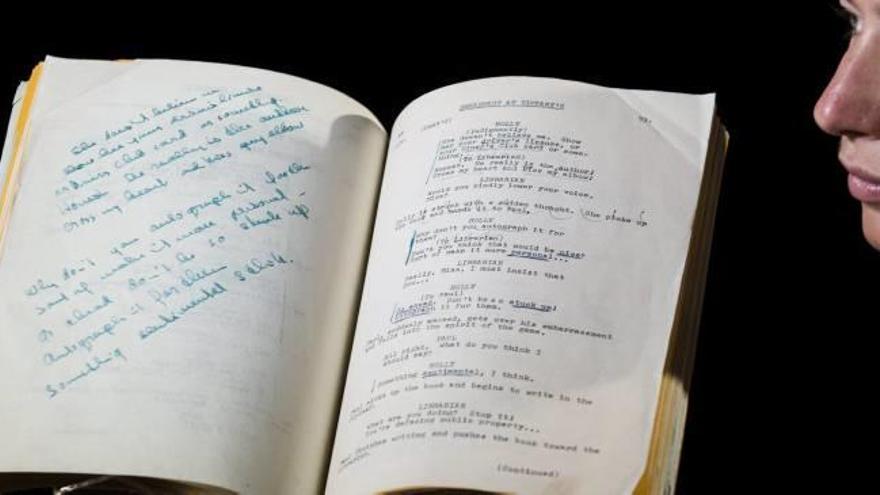 She doesn't believe me
show her your drivers license
or diners club card or something.
Honest he really is the author
cross my heart and kiss my elbow
Why don't you autograph it for them
sort of make it more personal -
go ahead don't be so stuck up
autograph it for them
something sentimental I think.
BREAKFAST AT TIFFANY'S
(Cont'd) 93.
HOLLY
(indignantly)
She doesn't believe me. Show
her your driver's license, or
your Diner's Club card or some-
thing.
(To Librarian)
Honest. He really is the author;
Cross my heart and kiss my elbow;
LIBRARIAN
Would you kindly lower your voice,
Miss?
Holly is struck with a sudden thought. She picks up
the book and hands it to Paul.
HOLLY
Why don't you autograph it for
them?
(To Librarian)
Don't you think that would be nice?
Sort of make it more personal...
LIBRARIAN
Really, Miss, I must insist that
you...
HOLLY
(To Paul)
Go ahead. Don't be so stuck up;
Autograph it for them.
Paul, suddenly amused, gets over his embarrassment
and falls into the spirit of the game.
PAUL
All right, what do you think I
should say?
HOLLY
Something sentimental, I think.
Paul picks up the book and begins to write in the
LIBRARIAN
What are you doing? Stop it;
You're defacing public property...
Paul finishes writing and pushes the book toward the
Librarian.
(Continued)